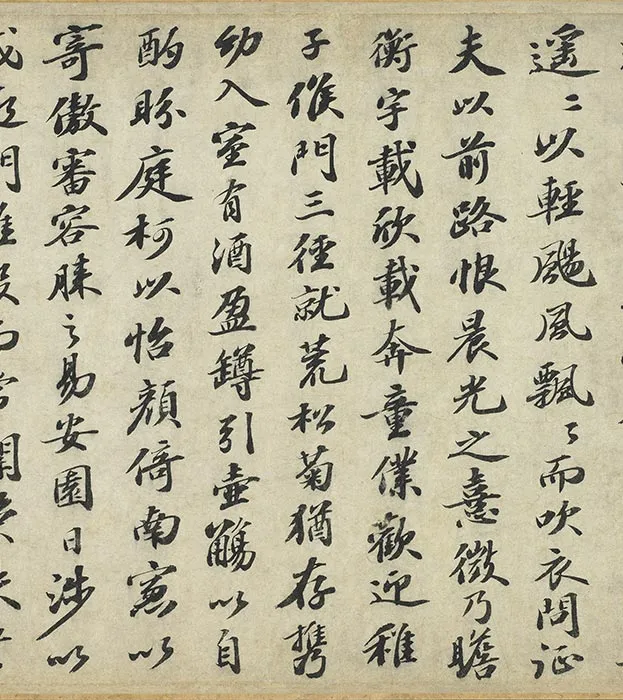 遥〻以輕颺風飄〻而吹衣問征
夫以前路恨晨光之憙微乃瞻
衡宇載欣載奔童僕歡迎稚
子候門三徑就荒松菊猶存携
幼入室有酒盈罇引壺觴以自
酌眄庭柯以怡顔倚南窓以
寄傲審容膝之易安園日涉以